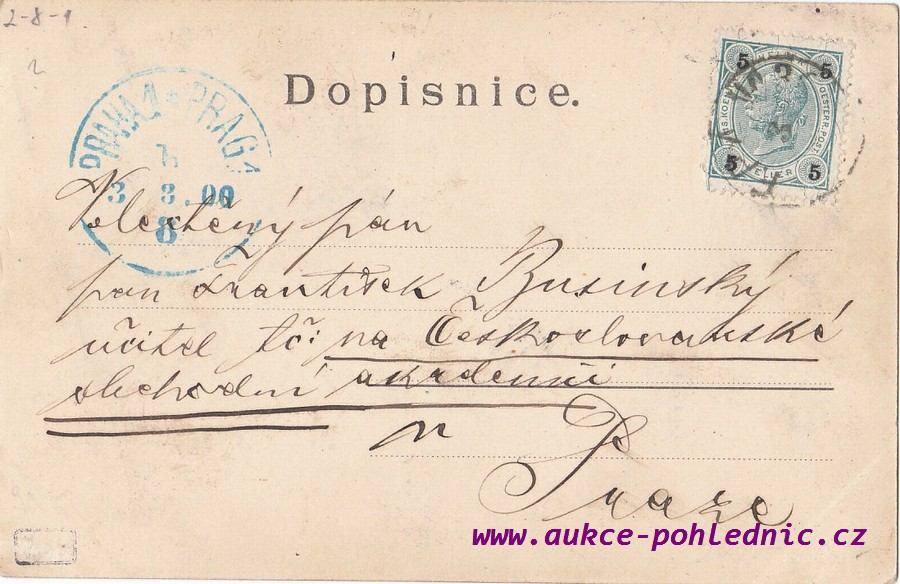 2-8-1
Dopisnice.
PRAHA 1 * PRAG 1
3 8.00
8
5 5
5 5
Velectěný pán
pan František Businský
učitel tči na Českoslovanské
obchodní akademii
v Praze
www.aukce-pohlednic.cz